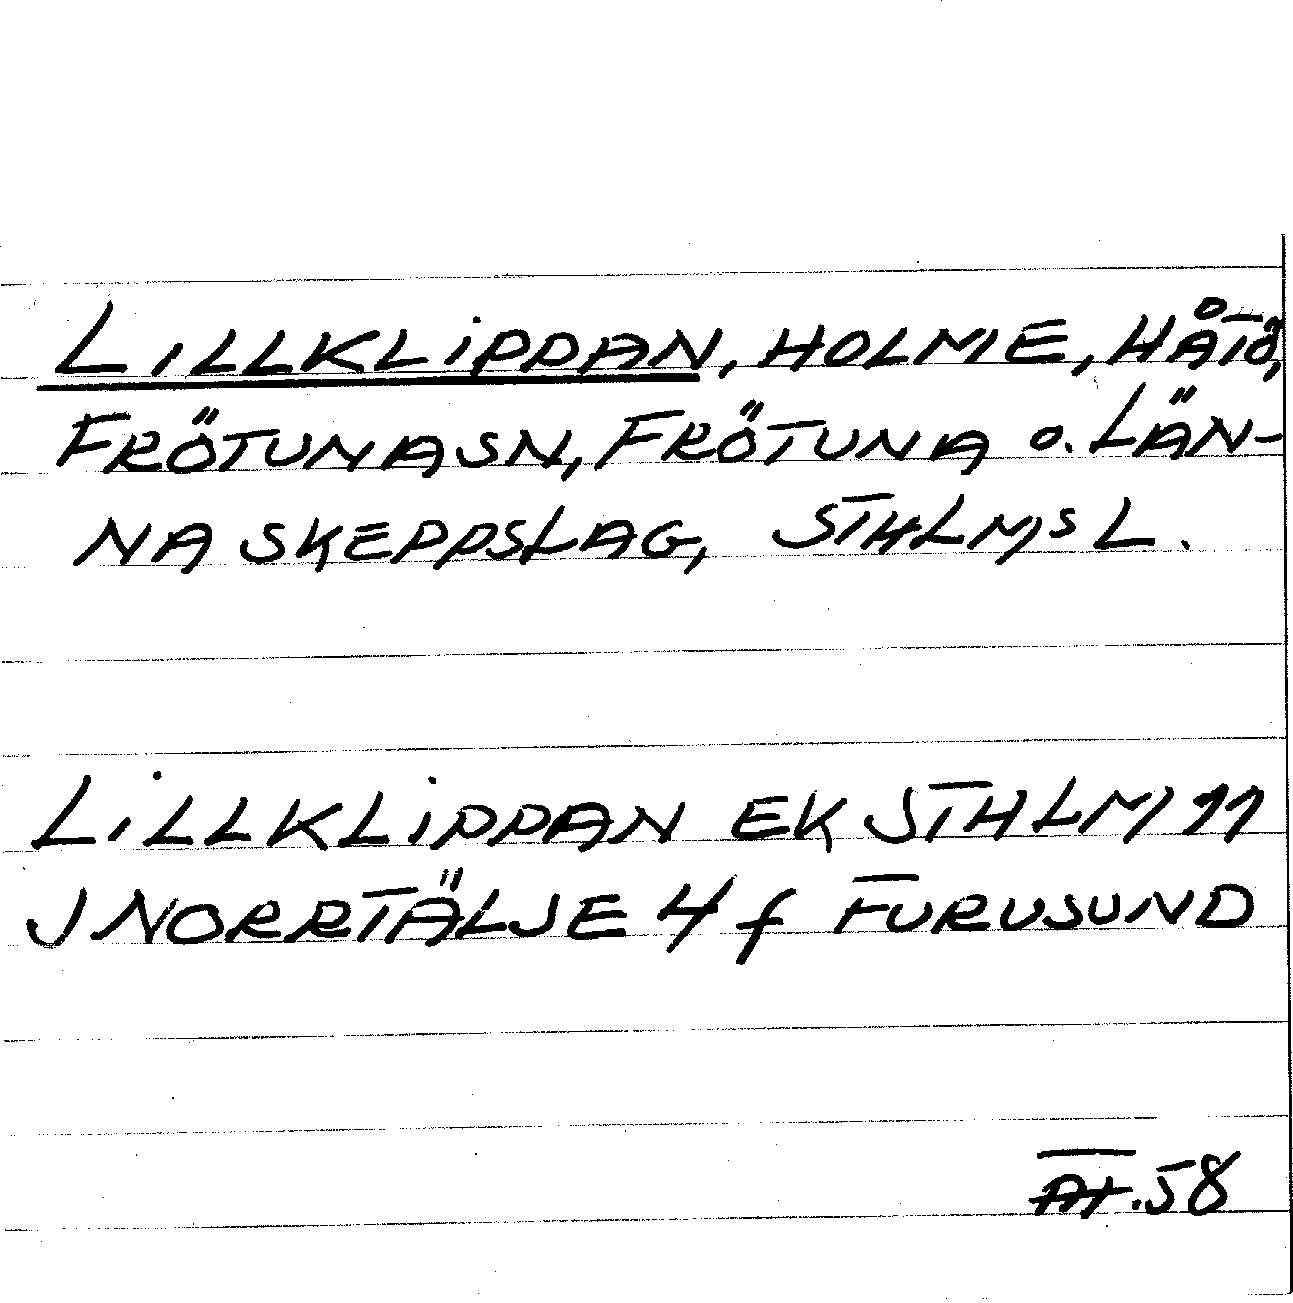 LILLKLIPPAN, HOLME, HÅTÖ,
FRÖTUNA SN, FRÖTUNA o. LÄN-
NA SKEPPSLAG, STHLMS L.
LILLKLIPPAN EK STHLM 11
J NORRTÄLJE 4 f FURUSUND
AT.58